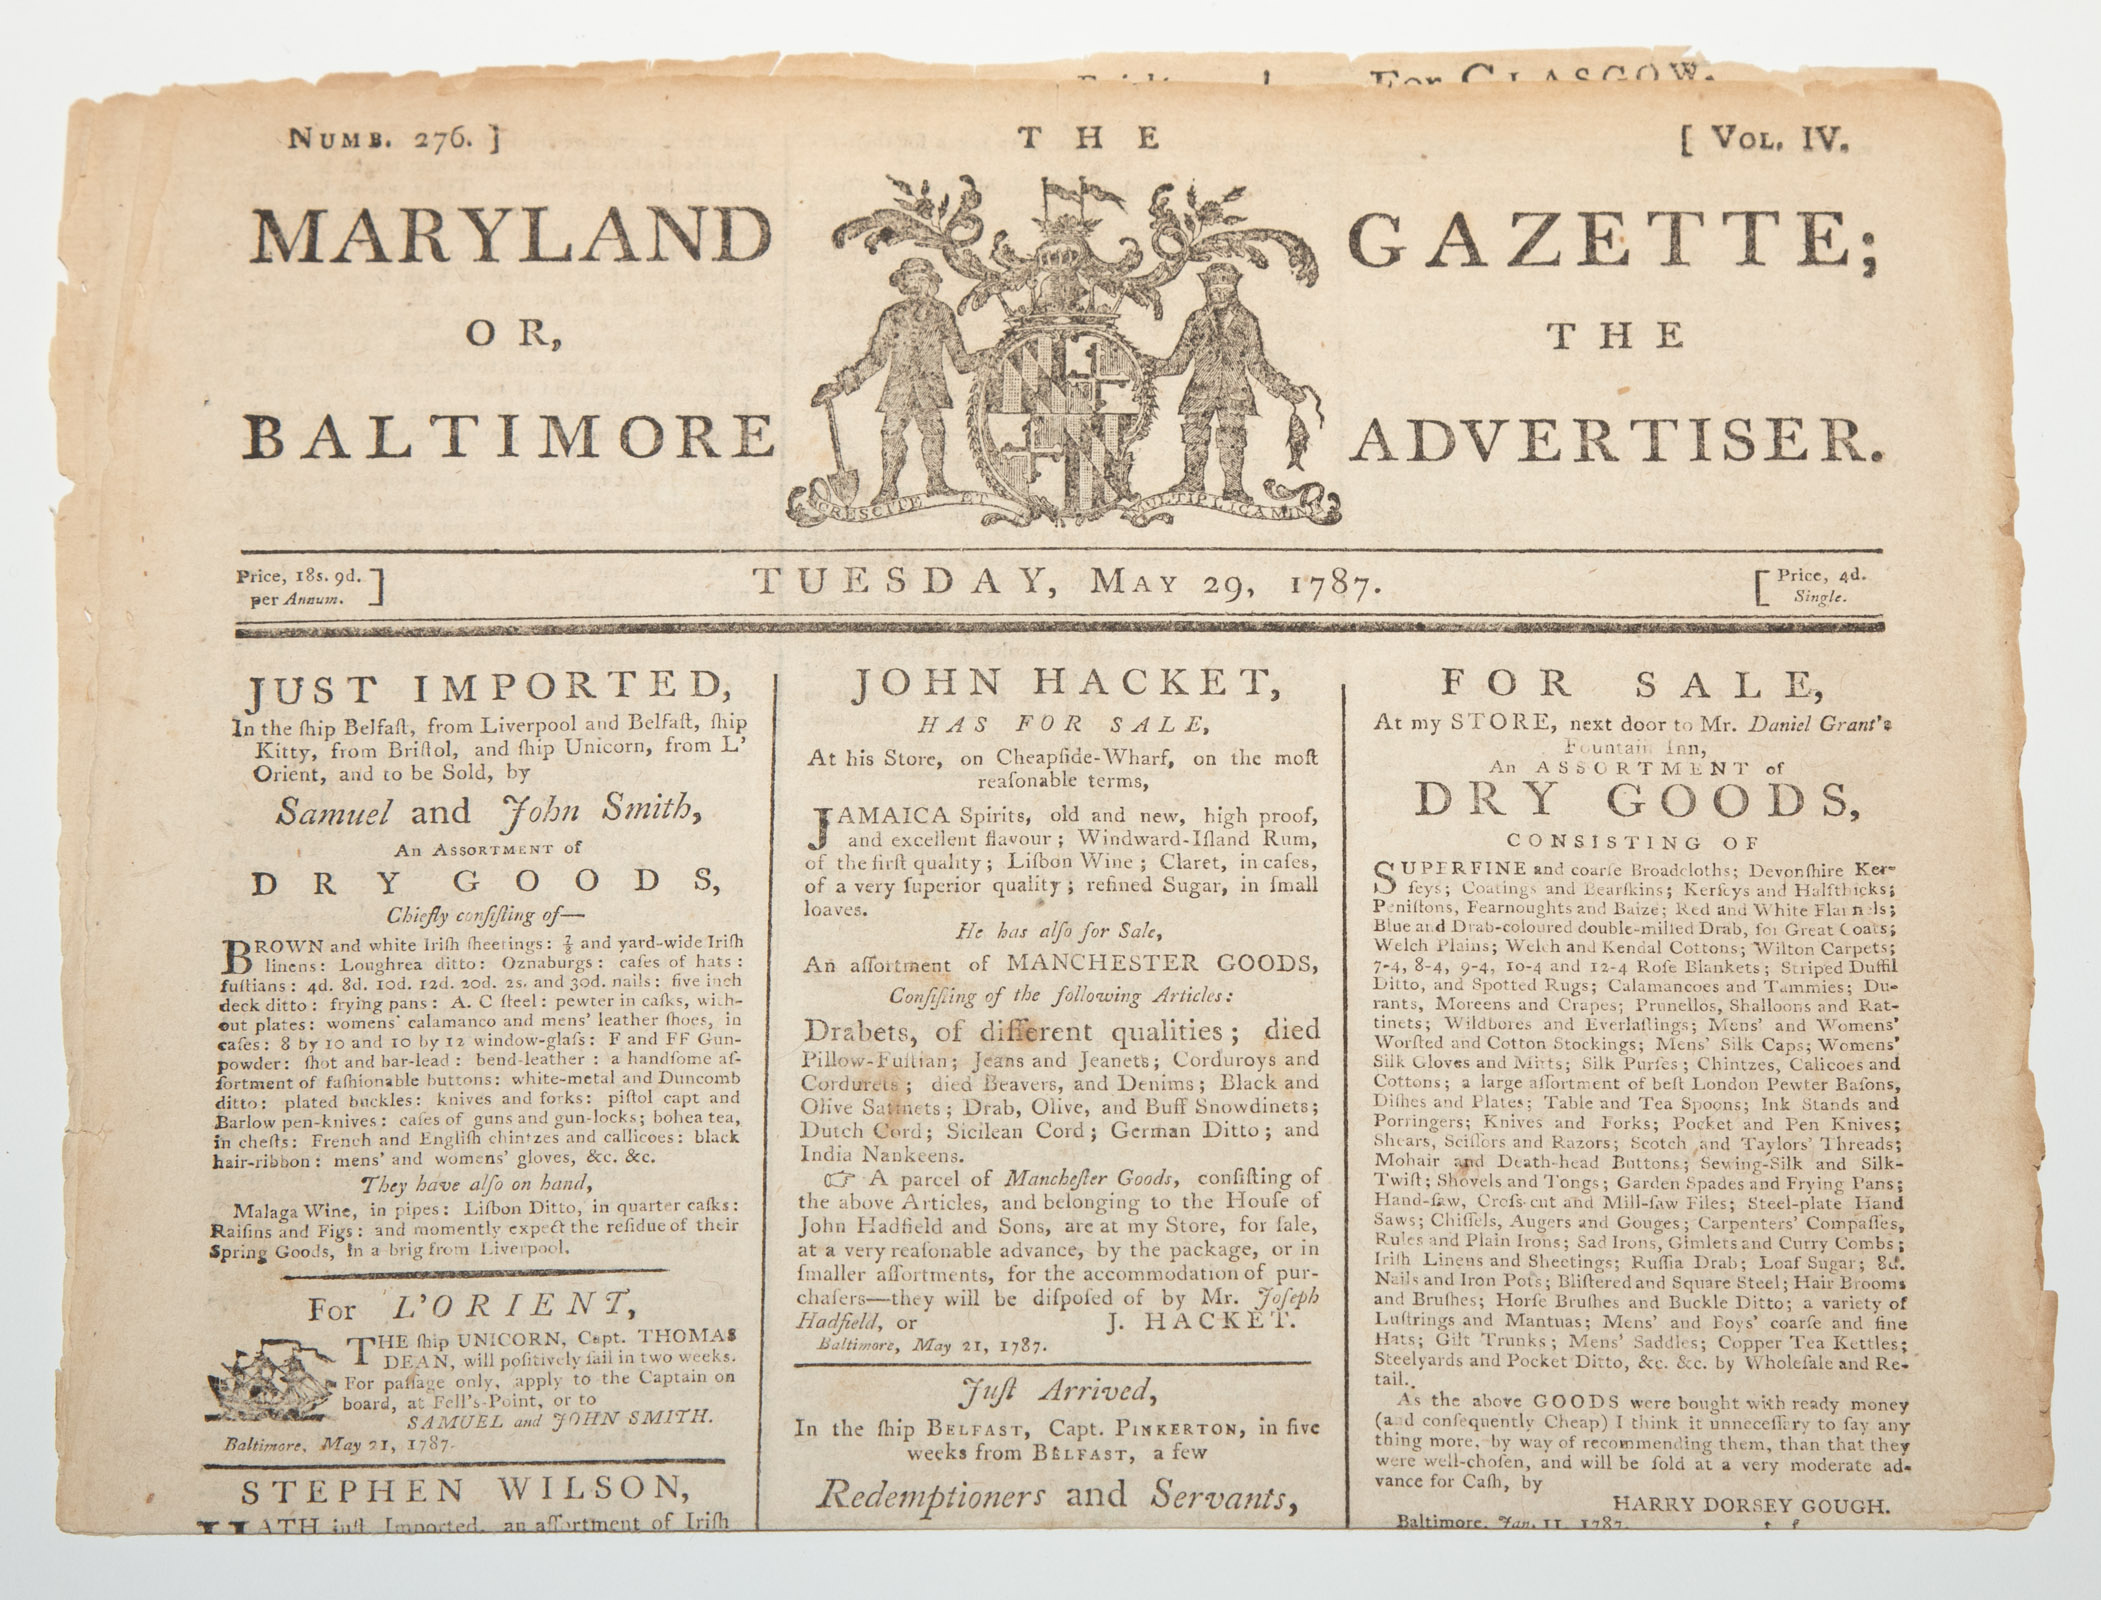 For GLASGOW.
NUMB. 276. ]
THE
[ VOL. IV.
MARYLAND GAZETTE;
OR, THE
BALTIMORE ADVERTISER.
CRESCITE ET MULTIPLICAMINI
Price, 18s. 9d.
per Annum. ]
TUESDAY, MAY 29, 1787.
[ Price, 4d.
Single.
JUST IMPORTED,
In the ſhip Belfaſt, from Liverpool and Belfaſt, ſhip
Kitty, from Briſtol, and ſhip Unicorn, from L'
Orient, and to be Sold, by
Samuel and John Smith,
An ASSORTMENT of
DRY GOODS,
Chiefly conſiſting of—
BROWN and white Iriſh ſheetings: ⅞ and yard-wide Iriſh
linens: Loughrea ditto: Oznaburgs: caſes of hats:
fuſtians: 4d. 8d. 10d. 12d. 20d. 2s. and 30d. nails: five inch
deck ditto: frying pans: A. C ſteel: pewter in caſks, with-
out plates: womens' calamanco and mens' leather ſhoes, in
caſes: 8 by 10 and 10 by 12 window-glaſs: F and FF Gun-
powder: ſhot and bar-lead: bend-leather: a handſome aſ-
ſortment of faſhionable buttons: white-metal and Duncomb
ditto: plated buckles: knives and forks: piſtol capt and
Barlow pen-knives: caſes of guns and gun-locks; bohea tea,
in cheſts: French and Engliſh chintzes and callicoes: black
hair-ribbon: mens' and womens' gloves, &c. &c.
They have alſo on hand,
Malaga Wine, in pipes: Liſbon Ditto, in quarter caſks:
Raiſins and Figs: and momently expect the reſidue of their
Spring Goods, in a brig from Liverpool.
For L'ORIENT,
THE ſhip UNICORN, Capt. THOMAS
DEAN, will poſitively ſail in two weeks.
For paſſage only, apply to the Captain on
board, at Fell's-Point, or to
SAMUEL and JOHN SMITH.
Baltimore, May 21, 1787.
STEPHEN WILSON,
HATH juſt Imported, an aſſortment of Iriſh
JOHN HACKET,
HAS FOR SALE,
At his Store, on Cheapſide-Wharf, on the moſt
reaſonable terms,
JAMAICA Spirits, old and new, high proof,
and excellent flavour; Windward-Iſland Rum,
of the firſt quality; Liſbon Wine; Claret, in caſes,
of a very ſuperior quality; refined Sugar, in ſmall
loaves.
He has alſo for Sale,
An aſſortment of MANCHESTER GOODS,
Conſiſting of the following Articles:
Drabets, of different qualities; died
Pillow-Fuſtian; Jeans and Jeanets; Corduroys and
Cordurets; died Beavers, and Denims; Black and
Olive Sattinets; Drab, Olive, and Buff Snowdinets;
Dutch Cord; Sicilean Cord; German Ditto; and
India Nankeens.
☞ A parcel of Mancheſter Goods, conſiſting of
the above Articles, and belonging to the Houſe of
John Hadfield and Sons, are at my Store, for ſale,
at a very reaſonable advance, by the package, or in
ſmaller aſſortments, for the accommodation of pur-
chaſers—they will be diſpoſed of by Mr. Joſeph
Hadfield, or J. HACKET.
Baltimore, May 21, 1787.
Juſt Arrived,
In the ſhip BELFAST, Capt. PINKERTON, in five
weeks from BELFAST, a few
Redemptioners and Servants,
FOR SALE,
At my STORE, next door to Mr. Daniel Grant's
Fountain Inn,
An ASSORTMENT of
DRY GOODS,
CONSISTING OF
SUPERFINE and coarſe Broadcloths; Devonſhire Ker-
ſeys; Coatings and Bearſkins; Kerſeys and Halfthicks;
Peniſtons, Fearnoughts and Baize; Red and White Flannels;
Blue and Drab-coloured double-milled Drab, for Great Coats;
Welch Plains; Welch and Kendal Cottons; Wilton Carpets;
7-4, 8-4, 9-4, 10-4 and 12-4 Roſe Blankets; Striped Duffil
Ditto, and Spotted Rugs; Calamancoes and Tammies; Du-
rants, Moreens and Crapes; Prunellos, Shalloons and Rat-
tinets; Wildbores and Everlaſtings; Mens' and Womens'
Worſted and Cotton Stockings; Mens' Silk Caps; Womens'
Silk Gloves and Mitts; Silk Purſes; Chintzes, Calicoes and
Cottons; a large aſſortment of beſt London Pewter Baſons,
Diſhes and Plates; Table and Tea Spoons; Ink Stands and
Porringers; Knives and Forks; Pocket and Pen Knives;
Shears, Sciſſors and Razors; Scotch and Taylors' Threads;
Mohair and Death-head Buttons; Sewing-Silk and Silk-
Twiſt; Shovels and Tongs; Garden Spades and Frying Pans;
Hand-ſaw, Croſs-cut and Mill-ſaw Files; Steel-plate Hand
Saws; Chiſſels, Augers and Gouges; Carpenters' Compaſſes,
Rules and Plain Irons; Sad Irons, Gimlets and Curry Combs;
Iriſh Linens and Sheetings; Ruſſia Drab; Loaf Sugar; 8d.
Nails and Iron Pots; Bliſtered and Square Steel; Hair Brooms
and Bruſhes; Horſe Bruſhes and Buckle Ditto; a variety of
Luſtrings and Mantuas; Mens' and Boys' coarſe and fine
Hats; Gilt Trunks; Mens' Saddles; Copper Tea Kettles;
Steelyards and Pocket Ditto, &c. &c. by Wholeſale and Re-
tail.
As the above GOODS were bought with ready money
(and conſequently Cheap) I think it unneceſſary to ſay any
thing more, by way of recommending them, than that they
were well-choſen, and will be ſold at a very moderate ad-
vance for Caſh, by
HARRY DORSEY GOUGH.
Baltimore, Jan. 11, 1787.